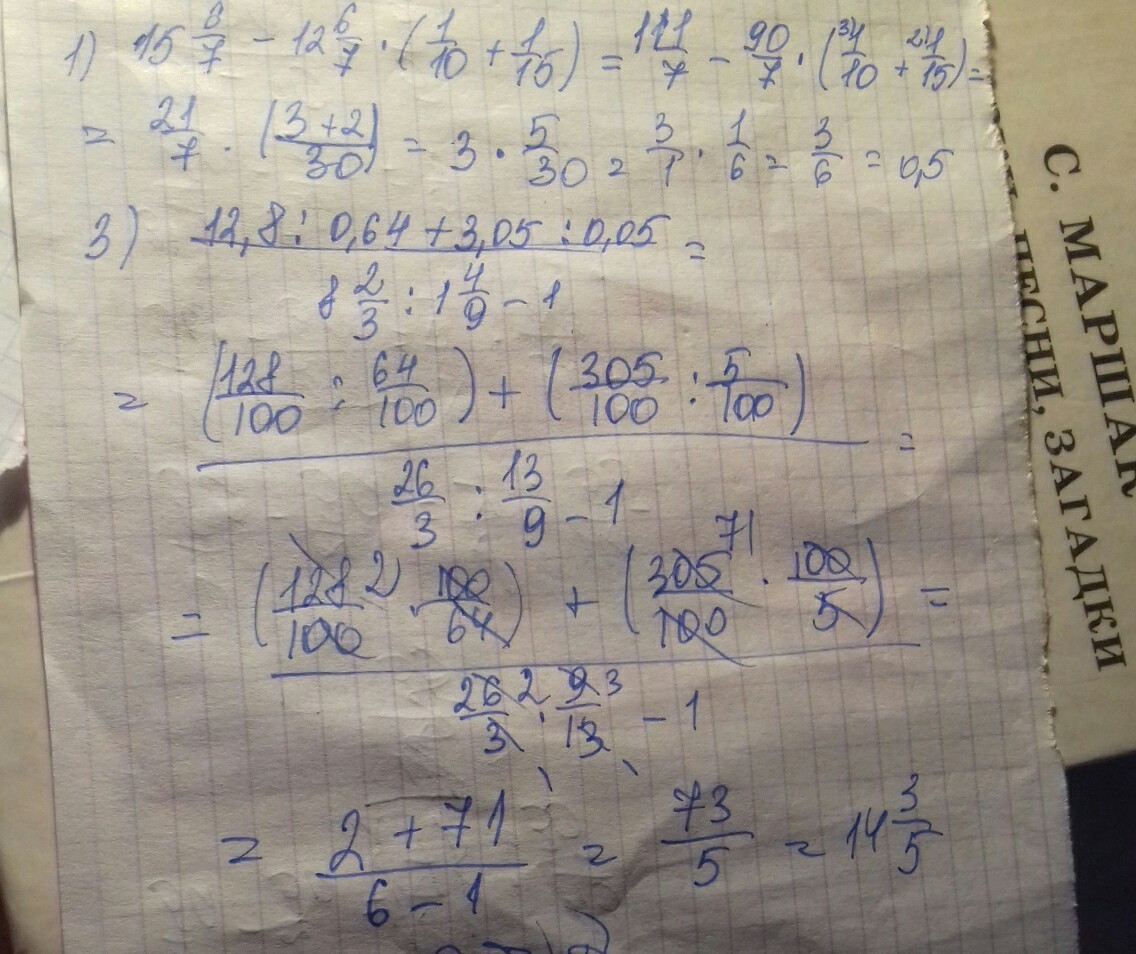 1) 15 6/7 − 12 6/7 · (1/10 + 1/15) = 111/7 − 90/7 · (3\1/10 + 2\1/15) =
= 21/7 · (3+2)/30 = 3 · 5/30 = 3/1 · 1/6 = 3/6 = 0,5
3) 12,8 : 0,64 + 3,05 : 0,05 =
8 2/3 : 1 4/9 − 1
= (128/100 : 64/100) + (305/100 : 5/100) =
26/3 : 13/9 − 1
= (128 2/100 · 100/64) + (305 71/100 · 100/5) =
26 2/3 · 9 3/13 − 1
= 2 + 71/6 − 1 = 73/5 = 14 3/5
С. МАРШАК
ПЕСНИ, ЗАГАДКИ